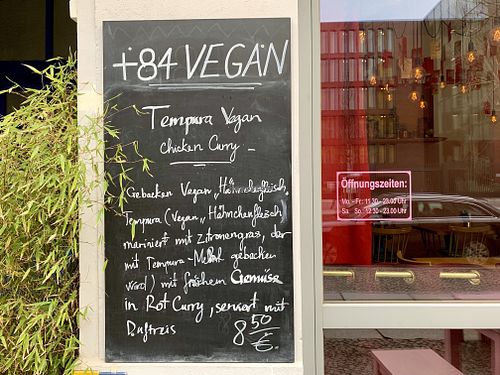 +84 VEGAN
Tempura Vegan
chicken Curry -
Gebacken Vegan „Hähnchenfleisch,
Tempura (Vegan „Hähnchenfleisch)
mariniert mit Zitronengras, der
mit Tempura - Mehl gebacken
wird) mit frischem Gemüse
in Rot Curry, serviert mit
Duftreis
8 50 €
Öffnungszeiten:
Mo. - Fr. 11.30 - 23.00 Uhr
Sa. So. 12.30 - 23.00 Uhr